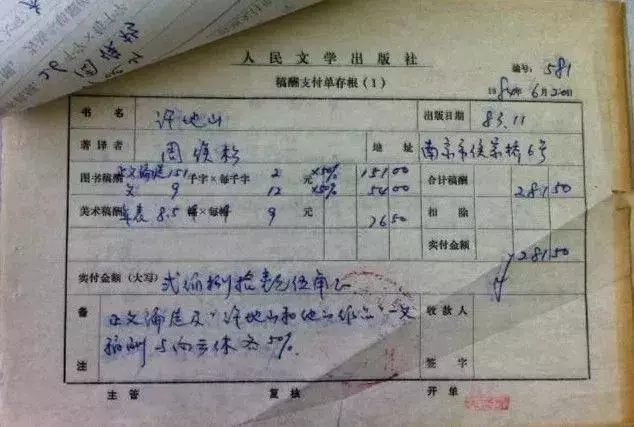 人民文学出版社
稿酬支付单存根(1)
编号: 581
1984年6月20日
书名 许地山 出版日期 83.11
著译者 周俟松 地址 南京市侯家桥6号
图书稿酬 正文编选 151 千字×每千字 2 元 ×50% 151 00 合计稿酬 281 50
文 9 12 ×50% 54 00
美术稿酬 年表 8.5 幅×每幅 9 元 76 50 扣除
实付金额 ¥281 50
实付金额(大写) 贰佰捌拾壹元伍角正
备注 正文编选及"许地山和他的作品"一文
稿酬与向云休各50%.
收款人签字
主管 复核 开单